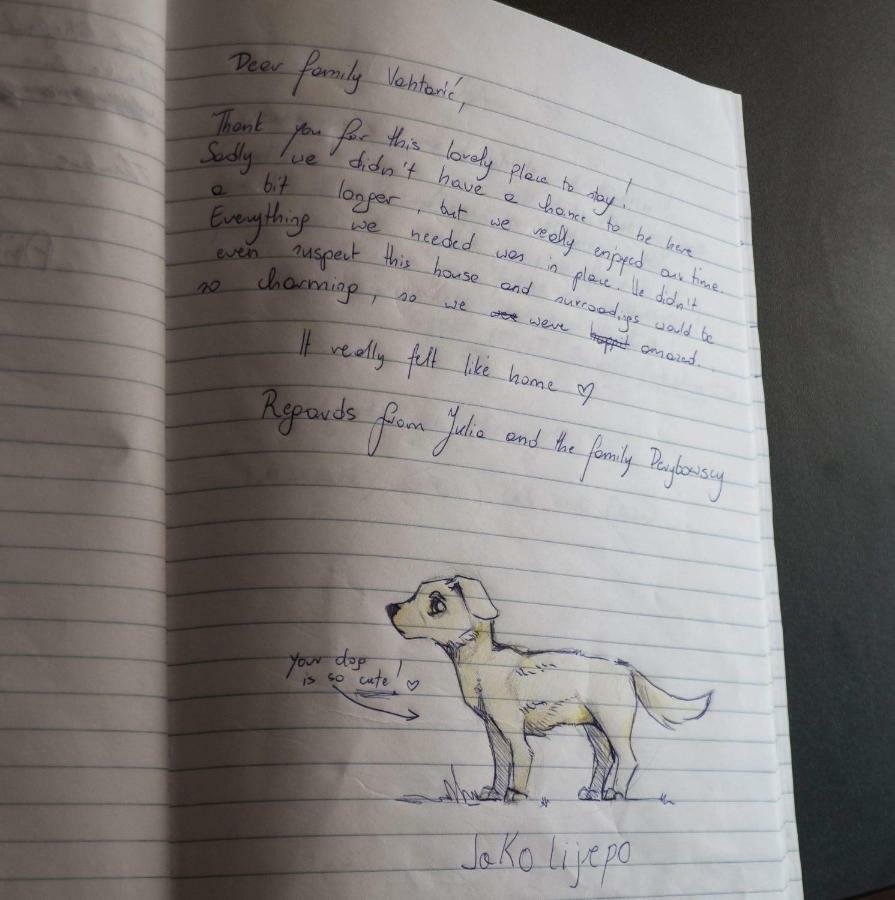 Dear family Vahtarić,
Thank you for this lovely place to stay!
Sadly we didn't have a chance to be here
a bit longer, but we really enjoyed our time.
Everything we needed was in place. We didn't
even suspect this house and surroadings would be
so charming, so we were amazed.
It really felt like home ♡
Regards from Julia and the family
your dog
is so cute! ♡
Jako lijepo